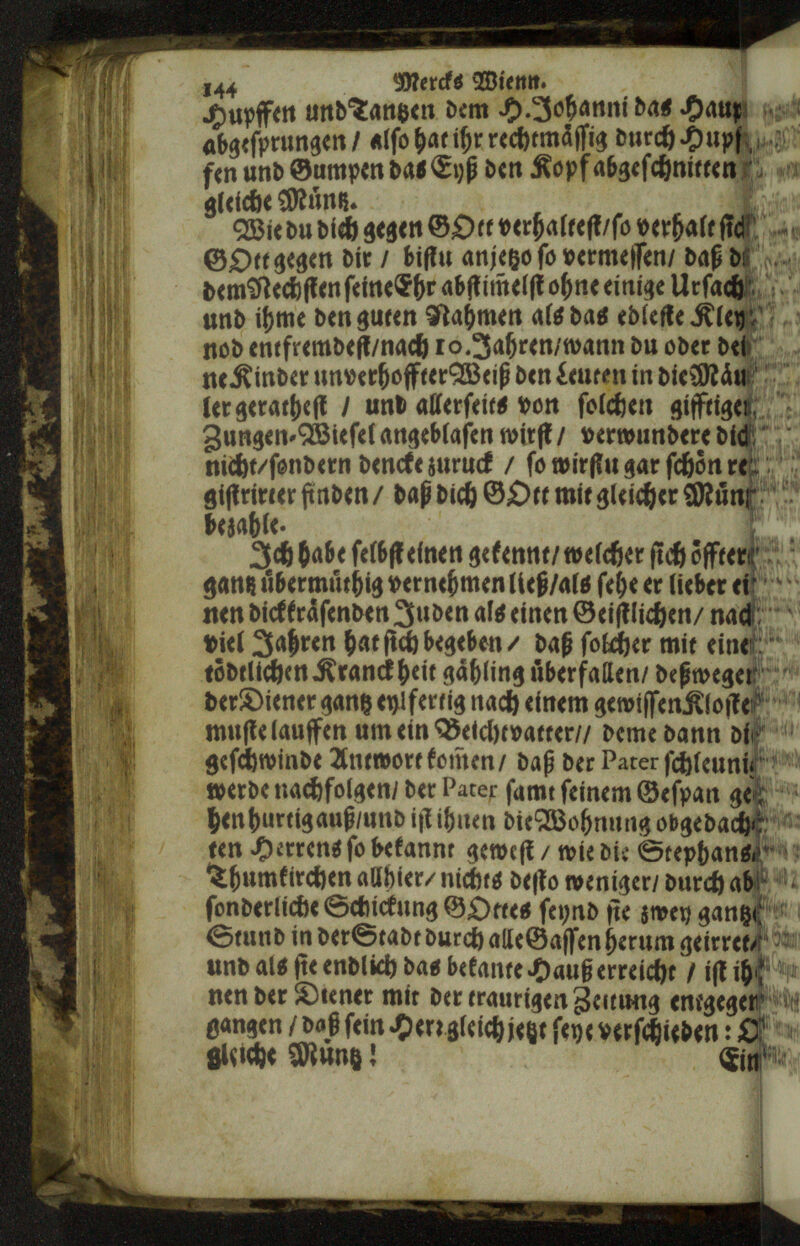 144 Mercks Wienn.
Hupffen und Tantzen dem H. Johanni das Haup
abgesprungen / also hat ihr rechtmässig durch Hupf
fen und Gumpen das Eyß den Kopf abgeschnitten
gleiche Müntz.
Wie du dich gegen GOtt verhaltest/so verhalt sich
GOtt gegen dir / bistu anjetzo so vermessen/ daß du
dem Nechsten seine Ehr abstim̃elst ohne einige Ursach
und ihme den guten Nahmen als das edleste Kley
nod entfrembdest/nach 10. Jahren/wann du oder dei
ne Kinder unverhoffter Weiß den Leuten in die Mäu
ler gerathest / und allerseits von solchen gifftigen
Zungen-Wiesel angeblasen wirst / verwundere dich
nicht/sondern dencke zuruck / so wirstu gar schön re
gistrirter finden / daß dich GOtt mit gleicher Müntz
bezahle.
Ich habe selbst einen gekennt/welcher sich öffter
gantz übermüthig vernehmen ließ/als sehe er lieber ei
nen dickkräsenden Juden als einen Geistlichen/ nach
viel Jahren hat sich begeben / daß solcher mit einer
tödtlichen Kranckheit gähling überfallen/ deßwegen
der Diener gantz eylfertig nach einem gewissen Kloster
muste lauffen um ein Beichtvatter// deme dann die
geschwinde Antwort kom̃en/ daß der Pater schleunig
werde nachfolgen/ der Pater samt seinem Gespan ge
hen hurtig auß/und ist ihnen die Wohnung obgedach
ten Herrens so bekannt gewest / wie die Stephans
Thumkirchen allhier/ nichts desto weniger/ durch ab
sonderliche Schickung GOttes seynd sie zwey gantze
Stund in der Stadt durch alle Gassen herum geirret/
und als sie endlich das bekante Hauß erreicht / ist ih
nen der Diener mit der traurigen Zeitung entgegen
gangen / daß sein Herr gleich jetzt seye verschieden: O
gleiche Müntz!
Ein